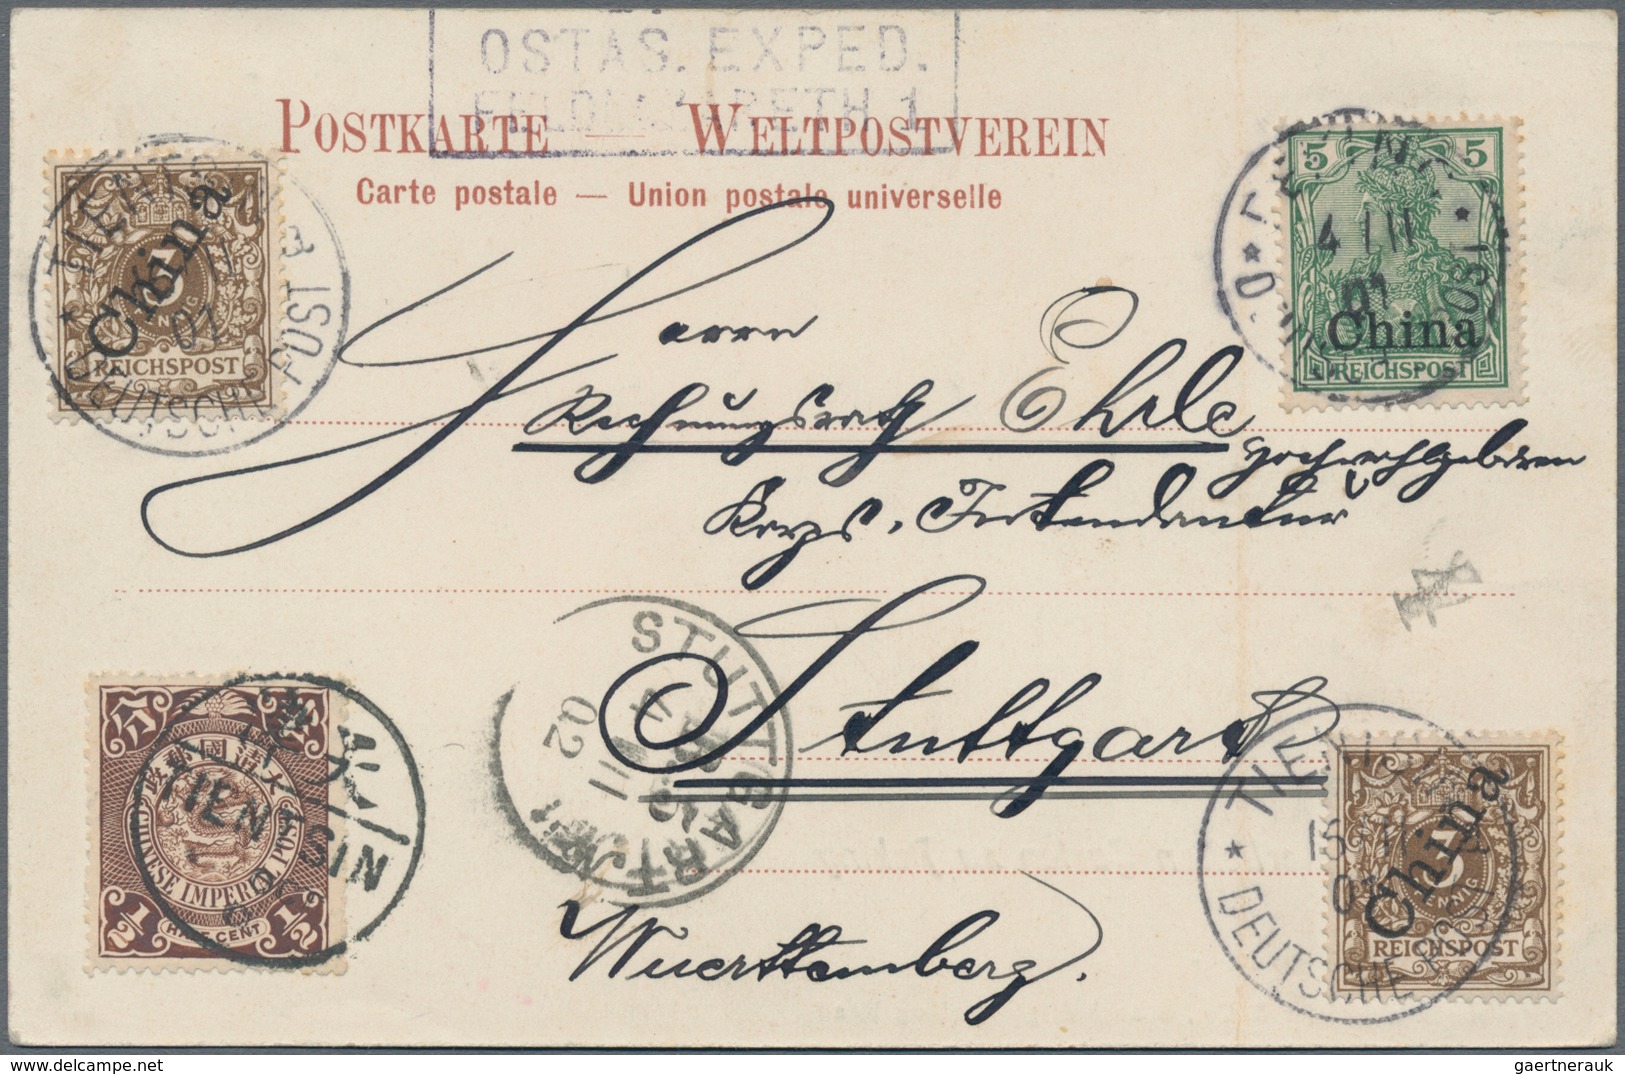 OSTAS. EXPED.
FELDLAZARETH 1
POSTKARTE — WELTPOSTVEREIN
Carte postale — Union postale universelle
TIENTSIN
11
01
DEUTSCHE POST
China
REICHSPOST
5 5
PEKING
4 III
01
DEUTSCHE POST
China
REICHSPOST
Herrn
Rechnungsrath Ehrle
Hochwohlgeboren
Korps-Intendantur
Stuttgart
Wuerttemberg.
STUTTGART
11
02
CHINESE IMPERIAL POST
1/2 HALF CENT 1/2
TIENTSIN
TIENTSIN
15
DEUTSCHE POST
China
REICHSPOST
gaertnerauk